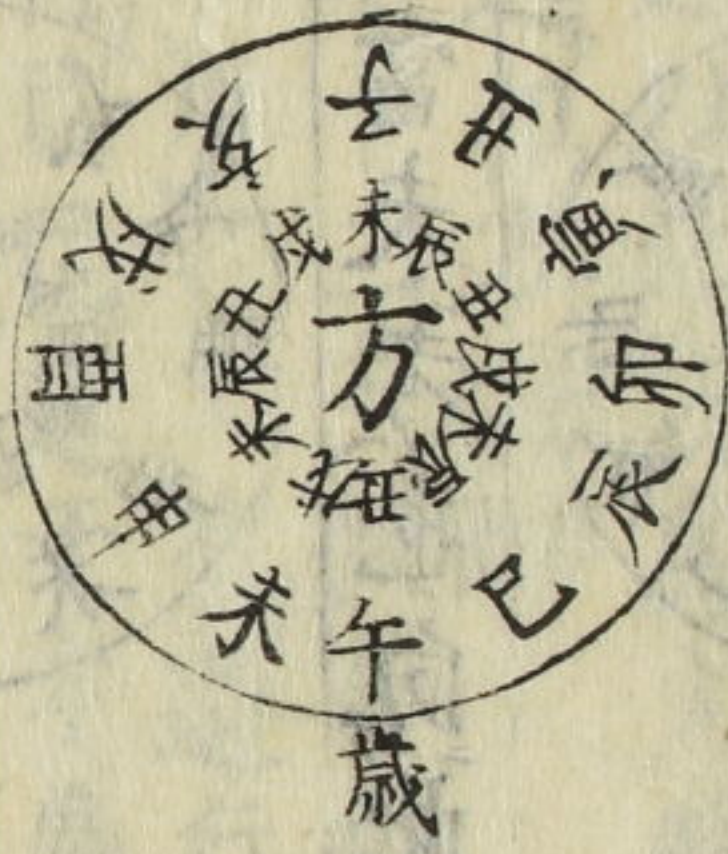 子丑寅卯辰巳午未申酉戌亥
未辰丑戌未辰丑戌未辰丑戌
方
歳